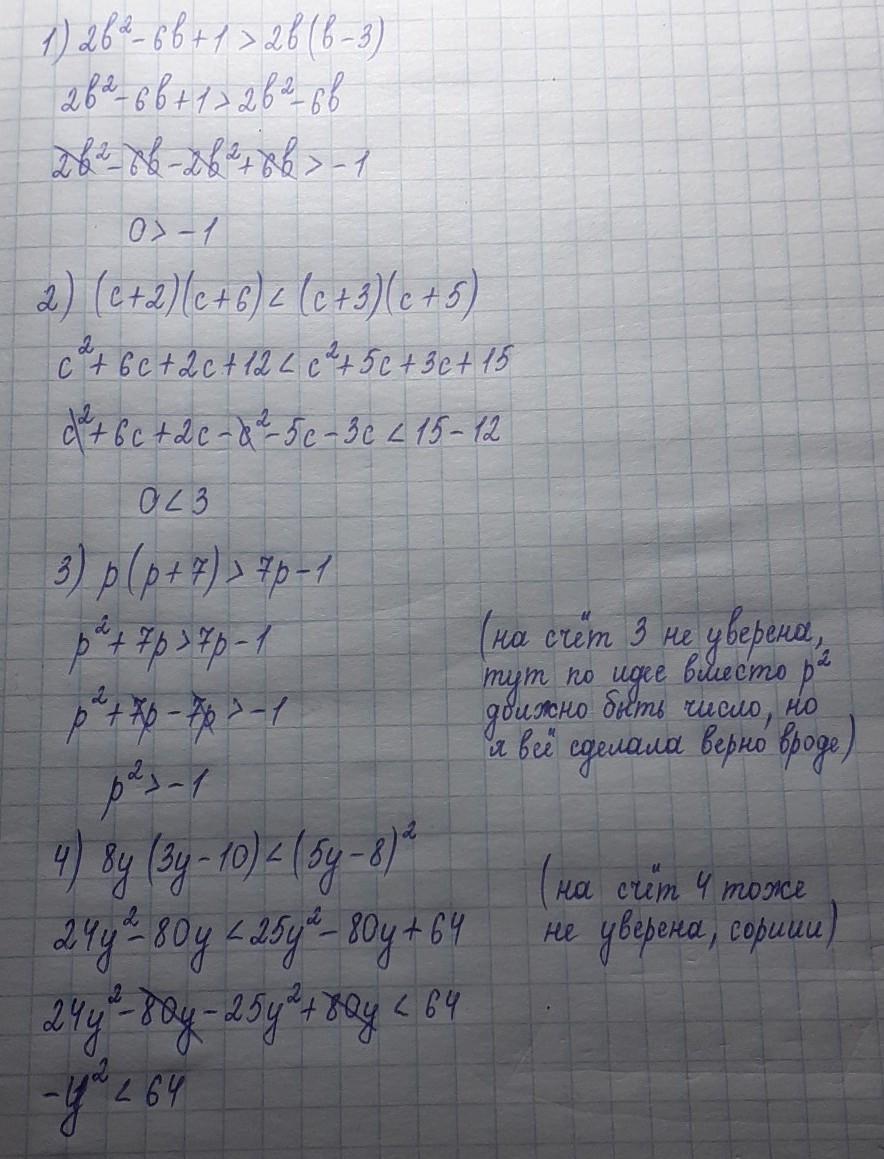 1) 2b² - 6b + 1 > 2b(b - 3)
2b² - 6b + 1 > 2b² - 6b
2b² - 6b - 2b² + 6b > -1
0 > -1
2) (c + 2)(c + 6) < (c + 3)(c + 5)
c² + 6c + 2c + 12 < c² + 5c + 3c + 15
c² + 6c + 2c - c² - 5c - 3c < 15 - 12
0 < 3
3) p(p + 7) > 7p - 1
p² + 7p > 7p - 1
p² + 7p - 7p > -1
p² > -1
(на счёт 3 не уверена,
тут по идее вместо p²
должно быть число, но
я всё сделала верно вроде)
4) 8y(3y - 10) < (5y - 8)²
24y² - 80y < 25y² - 80y + 64
24y² - 80y - 25y² + 80y < 64
-y² < 64
(на счёт 4 тоже
не уверена, сориии)